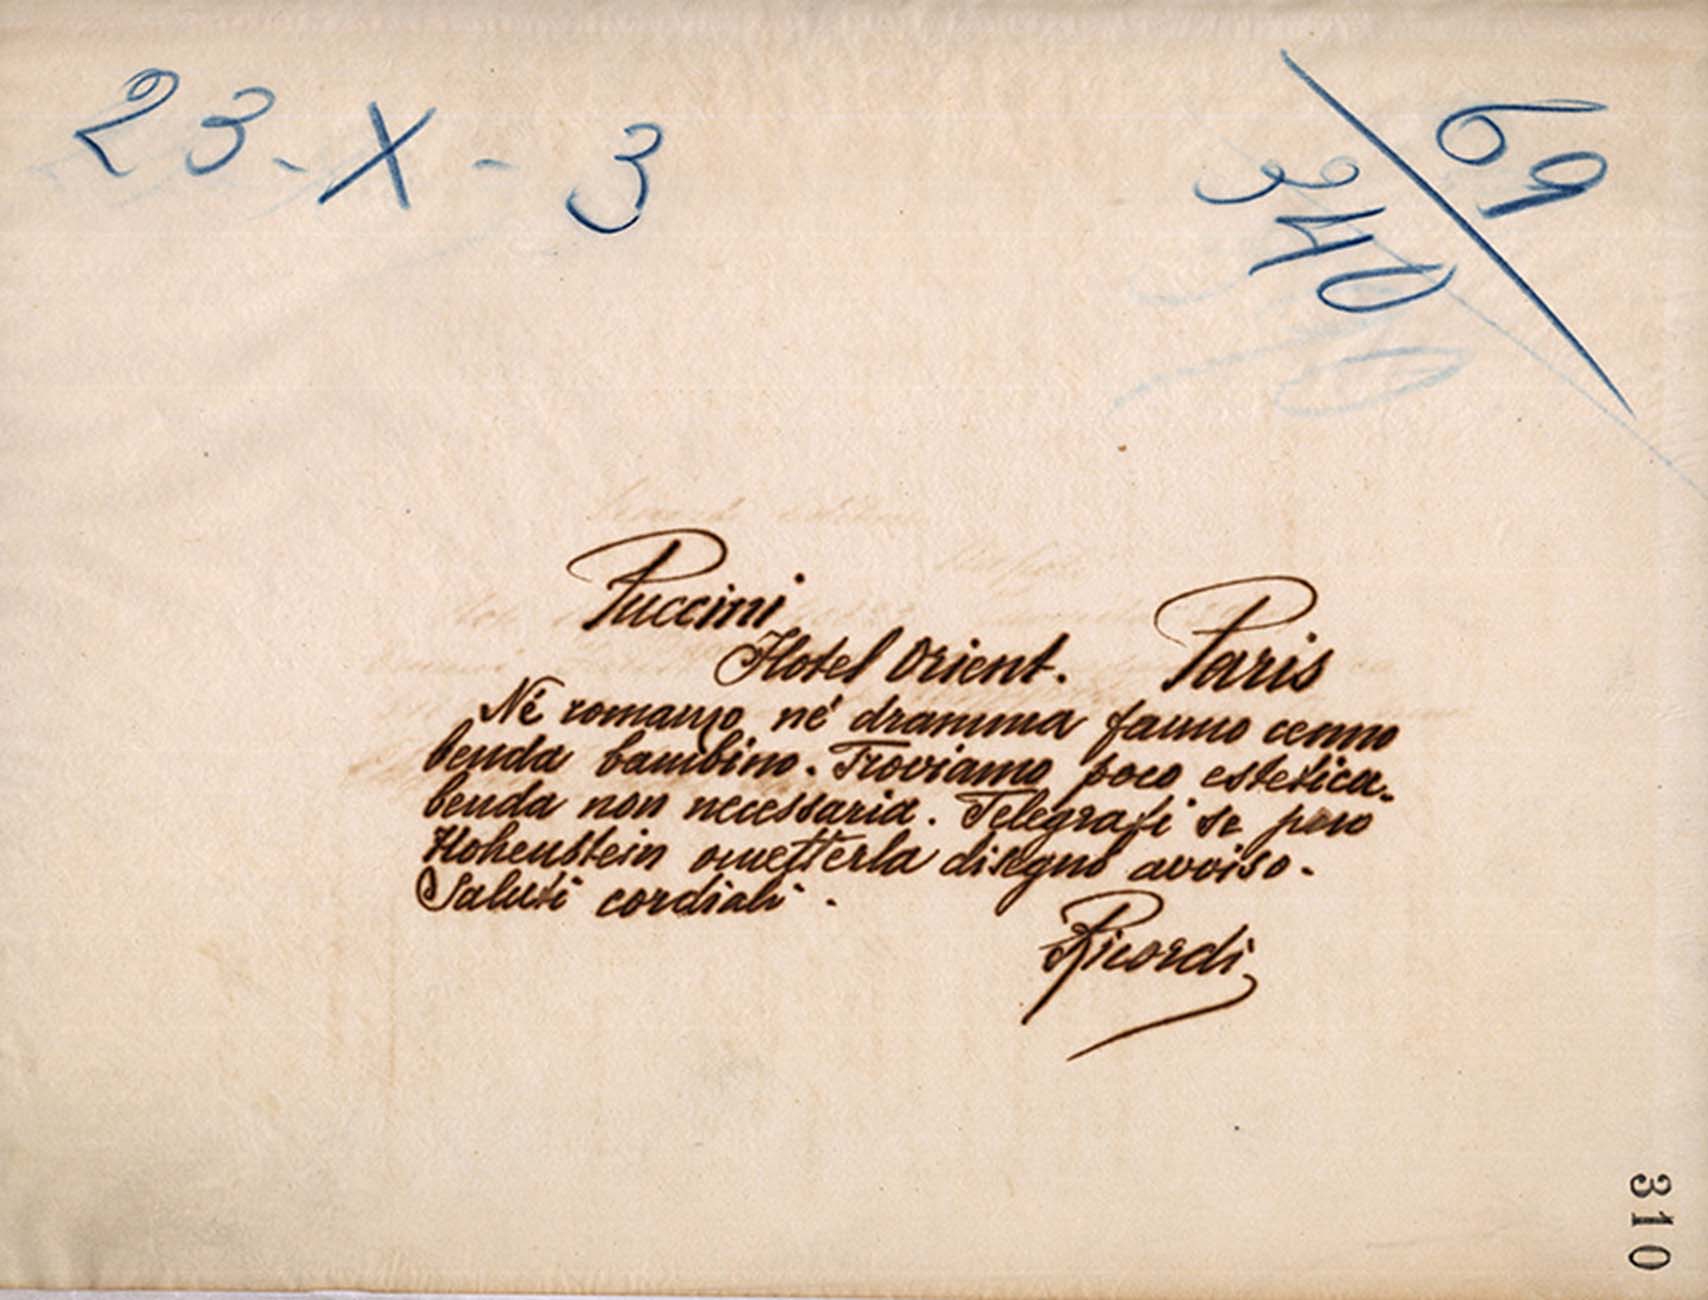 23-X-3
69
340
Puccini
Hotel Orient. Paris
Né romanzo né dramma fanno cenno
benda bambino. Troviamo poco estetica.
benda non necessaria. Telegrafi se
Hohenstein ometterla disegno avviso.
Saluti cordiali.
Ricordi
310